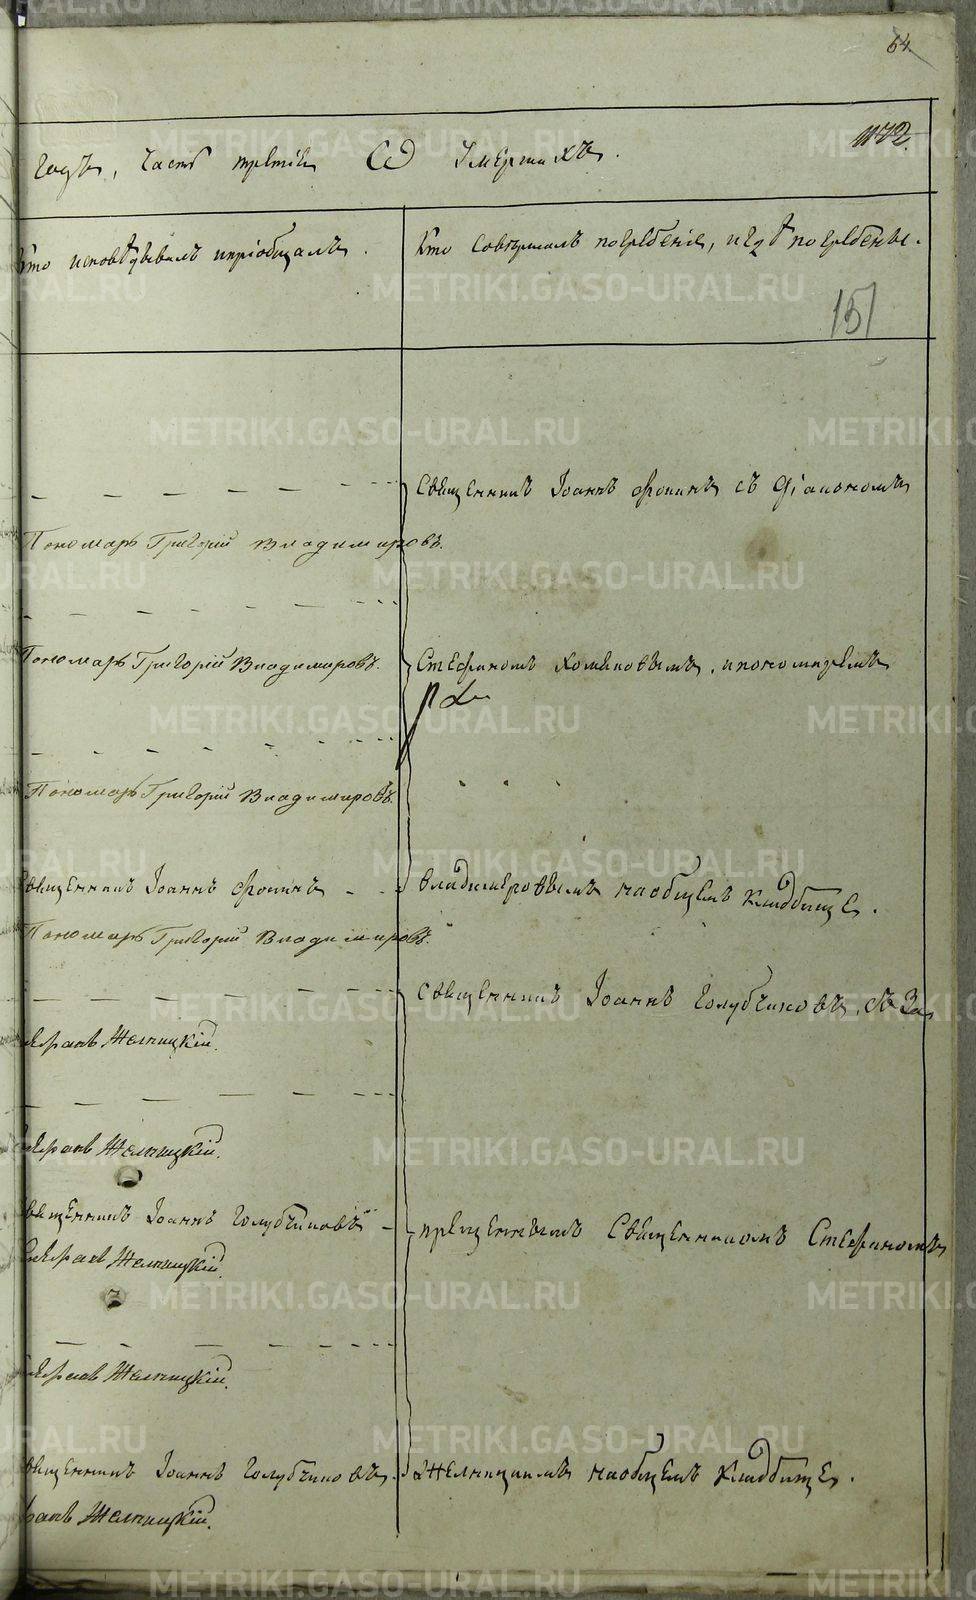 64.
1172.
годъ, часть третія О Умершихъ.
Кто исповѣдывалъ и пріобщалъ.
Кто совершалъ погребеніе, и гдѣ погребены.
151
Священникъ Іоаннъ съ Діакономъ
Пономарь Григорій Владимировъ.
Пономарь Григорій Владимировъ.
Стефаномъ Хомяковымъ, и пономаремъ
Пономарь Григорій Владимировъ.
Священникъ Іоаннъ
Владимировымъ на общемъ кладбище.
Пономарь Григорій Владимировъ.
Священникъ Іоаннъ Голубчиковъ, съ За
Желницкій.
Желницкій.
Священникъ Іоаннъ Голубчиковъ
прещеннымъ Священникомъ Стефаномъ
Желницкій.
Желницкій.
Священникъ Іоаннъ Голубчиковъ.
Желницкимъ на общемъ Кладбище.
Желницкій.
METRIKI.GASO-URAL.RU